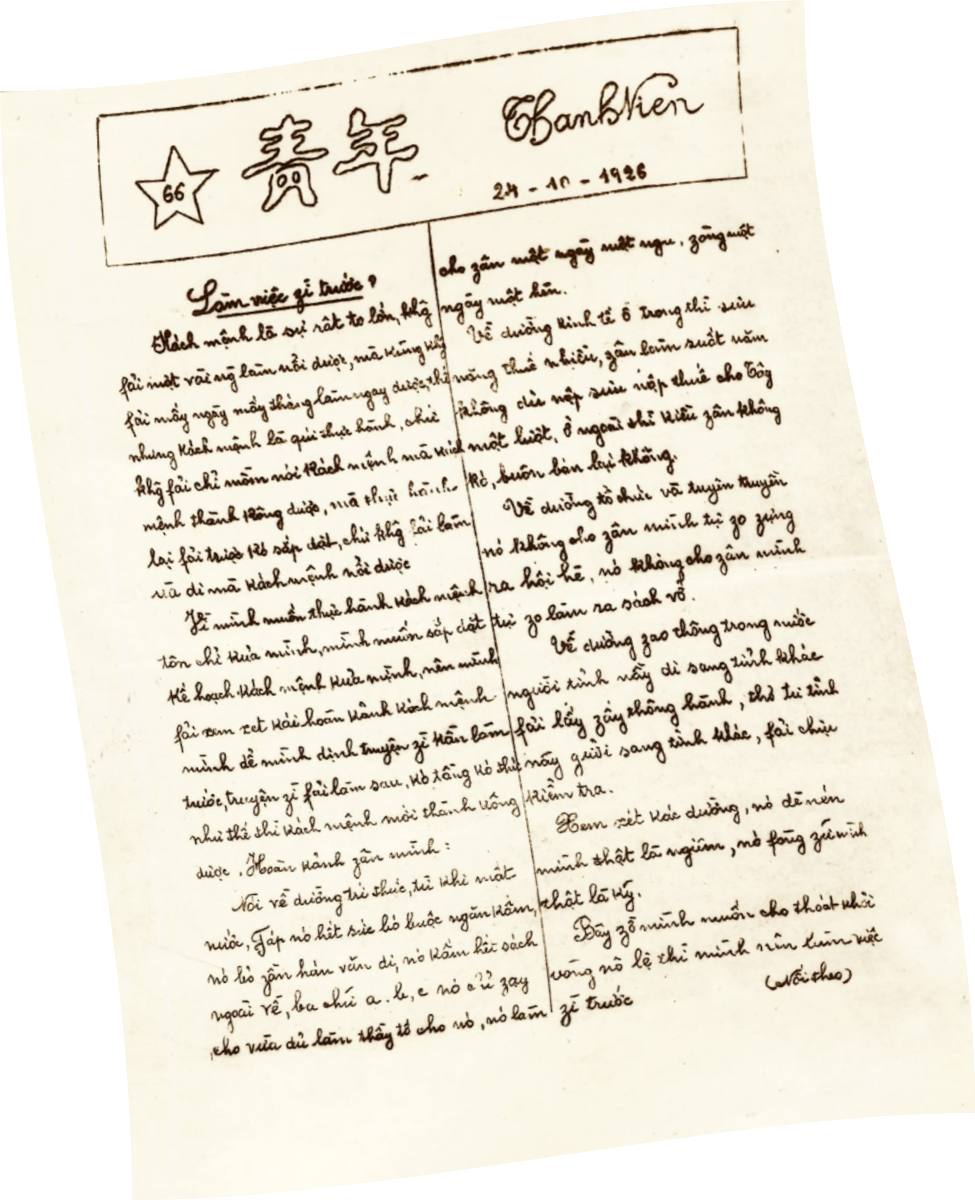 66
青年
Thanh Niên
24 - 10 - 1926
Làm việc zì trước?
Kách mệnh là sự rất to lớn, khg̃
fải một vài ng̃ làm nổi được, mà kũng khg̃
fải mấy ngày mấy tháng làm ngay được, thế
nhưng kách mệnh là qúi thực hành, chứ
khg̃ fải chỉ mồm nói kách mệnh mà kách
mệnh thành kông được, mà thực hành
lại fải trước kó sắp đặt, chứ khg̃ fải làm
và đi mà kách mệnh nổi được
Vì mình muốn thực hành kách mệnh
tôn chỉ kủa mình, mình muốn sắp đặt
kế hoạch kách mệnh kủa mình, nên mình
fải xem xét kái hoàn kảnh kách mệnh
mình để mình định truyện zì kần làm
trước, truyện zì fải làm sau, kó tầng kó thứ
như thế thì kách mệnh mới thành kông
được. Hoàn kảnh zân mình:
Nói về đường trí thức, từ khi mất
nước, Fáp nó hết sức bó buộc ngăn kấm,
nó bỏ zần hán văn đi, nó kấm hết sách
ngoài về, ba chữ a. b, c nó chỉ zạy
cho vừa đủ làm thầy tớ cho nó, nó làm
cho zân một ngày một ngu, zòng một
ngày một hèn.
Về đường kinh tế ở trong thì sưu
nặng thuế nhiều, zân làm suốt năm
không đủ nộp sưu nộp thuế cho Tây
một lượt, ở ngoài thì kiều zân không
kó, buôn bán lại không.
Về đường tổ chức và tuyên truyền
nó không cho zân mình tự zo zựng
ra hội hè, nó không cho zân mình
tự zo làm ra sách vở.
Về đường zao thông trong nước
người tỉnh nầy đi sang tỉnh khác
fải lấy zấy thông hành, thơ từ tỉnh
nầy gưởi sang tỉnh khác, fải chịu
kiểm tra.
Xem xét kác đường, nó đè nén
mình thật là ngiêm, nó fòng zữ mình
thật là kỹ.
Bây zờ mình muốn cho thoát khỏi
vòng nô lệ thì mình nên làm việc
zì trước
(Nối theo)